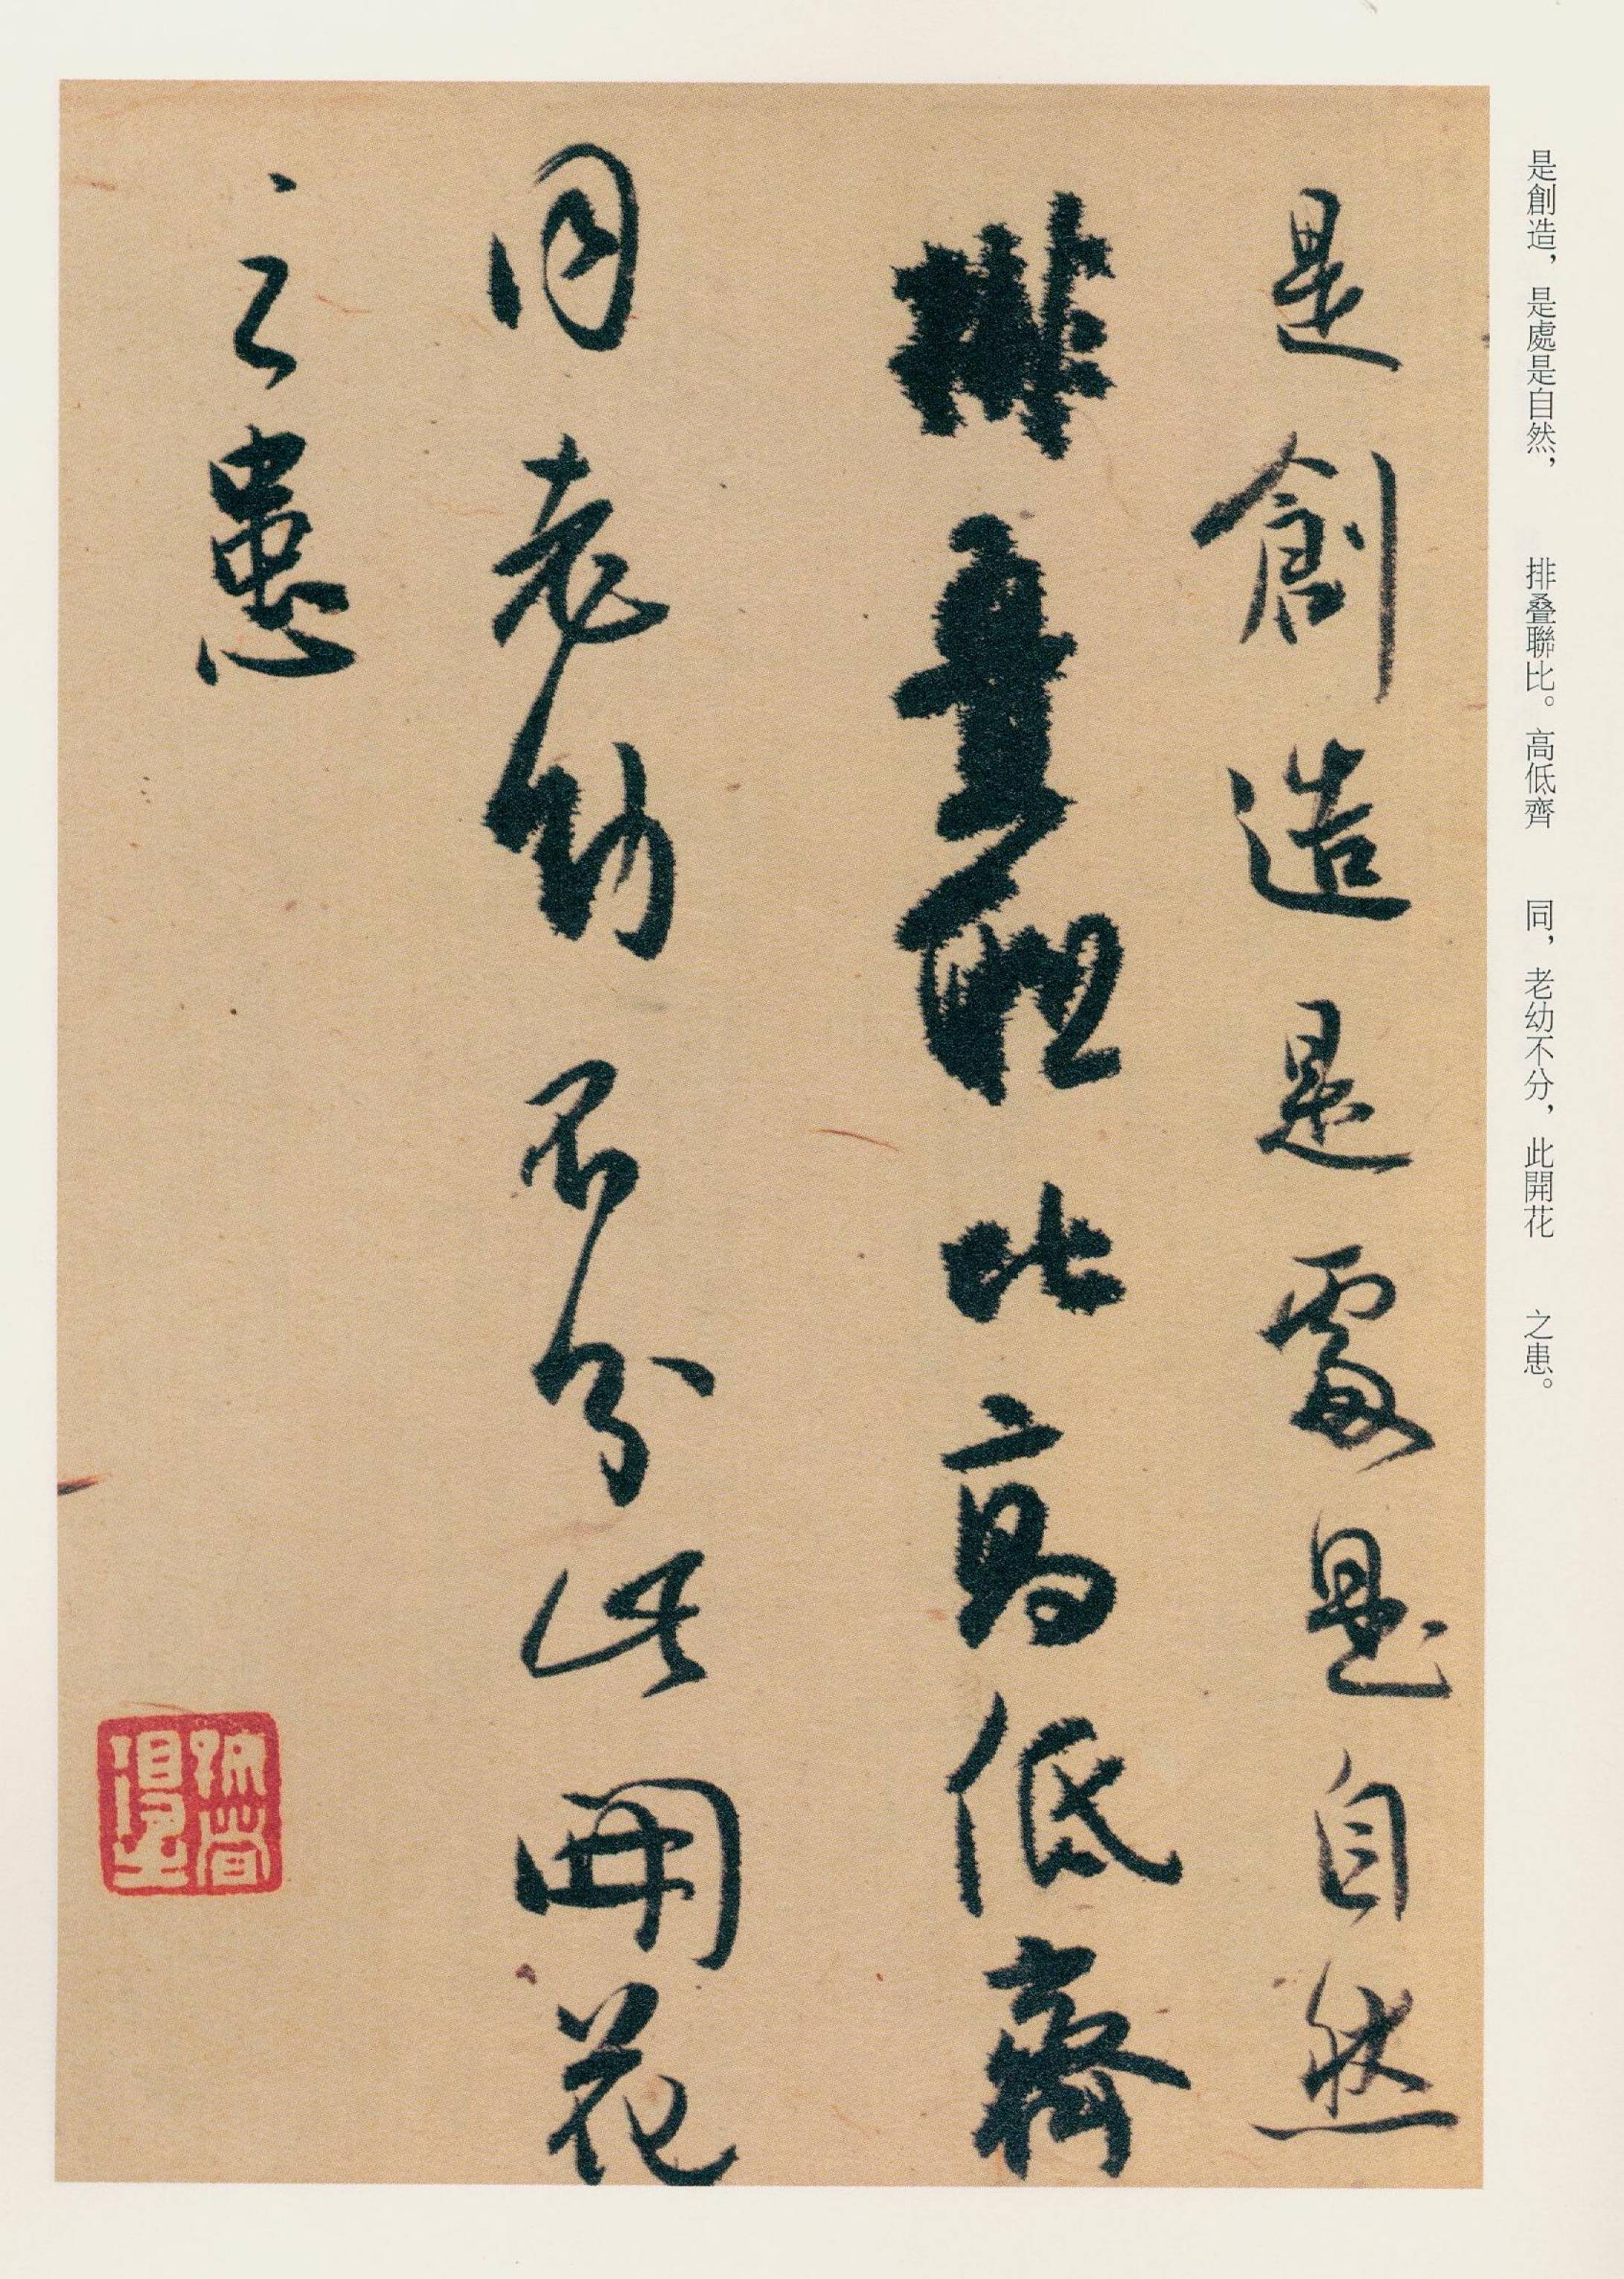 是創造，是處是自然，　排叠聯比。高低齊　同，老幼不分，此開花　之患。
是創造是處是自然
排叠聯比高低齊
同老幼不分此開花
之患